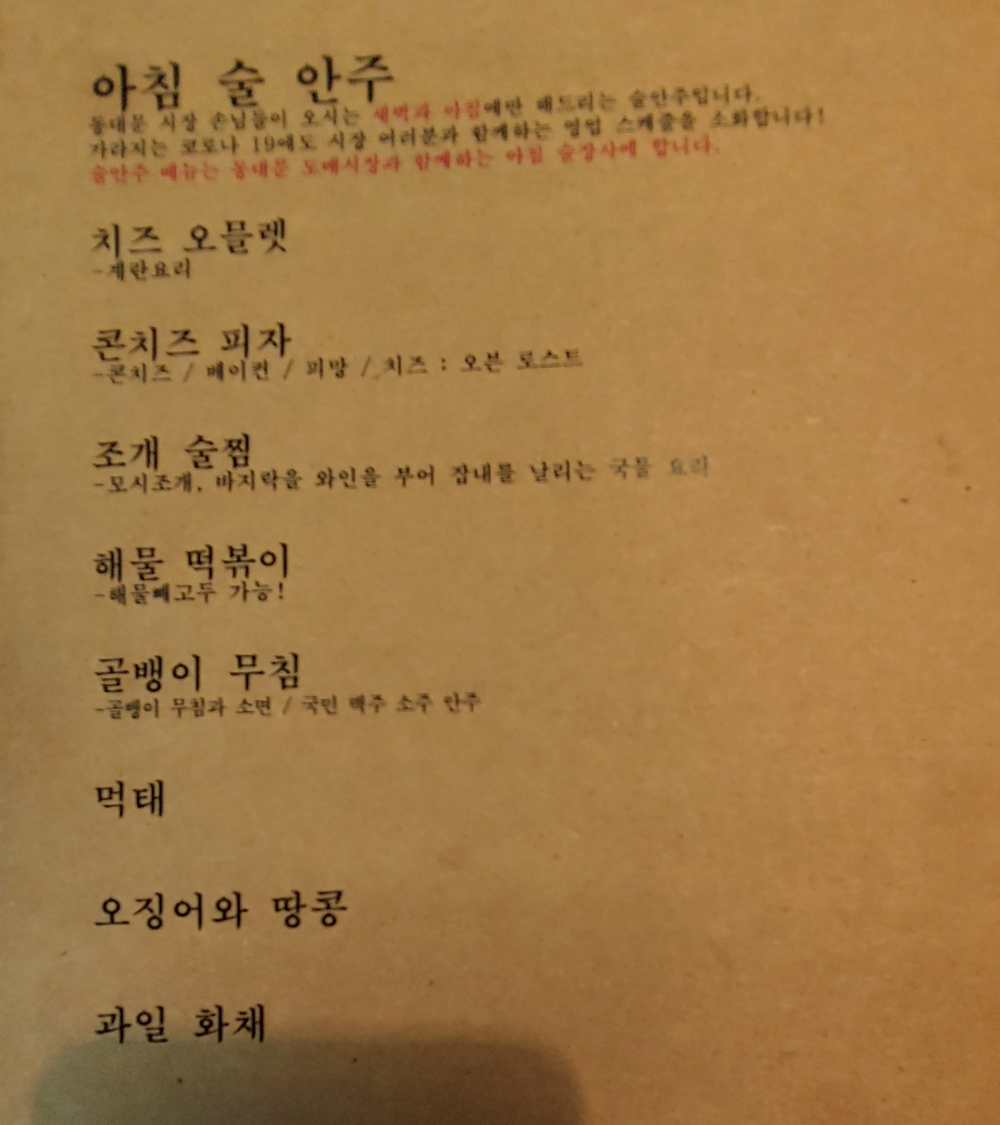 아침 술 안주
동대문 시장 손님들이 오시는 새벽과 아침에만 해드리는 술안주입니다.
가라지는 코로나 19에도 시장 여러분과 함께하는 영업 스케줄을 소화합니다!
술안주 메뉴는 동대문 도매시장과 함께하는 아침 술장사에 합니다.
치즈 오믈렛
-계란요리
콘치즈 피자
-콘치즈 / 베이컨 / 피망 / 치즈 : 오븐 로스트
조개 술찜
-모시조개, 바지락을 와인을 부어 잡내를 날리는 국물 요리
해물 떡볶이
-해물빼고두 가능!
골뱅이 무침
-골뱅이 무침과 소면 / 국민 맥주 소주 안주
먹태
오징어와 땅콩
과일 화채